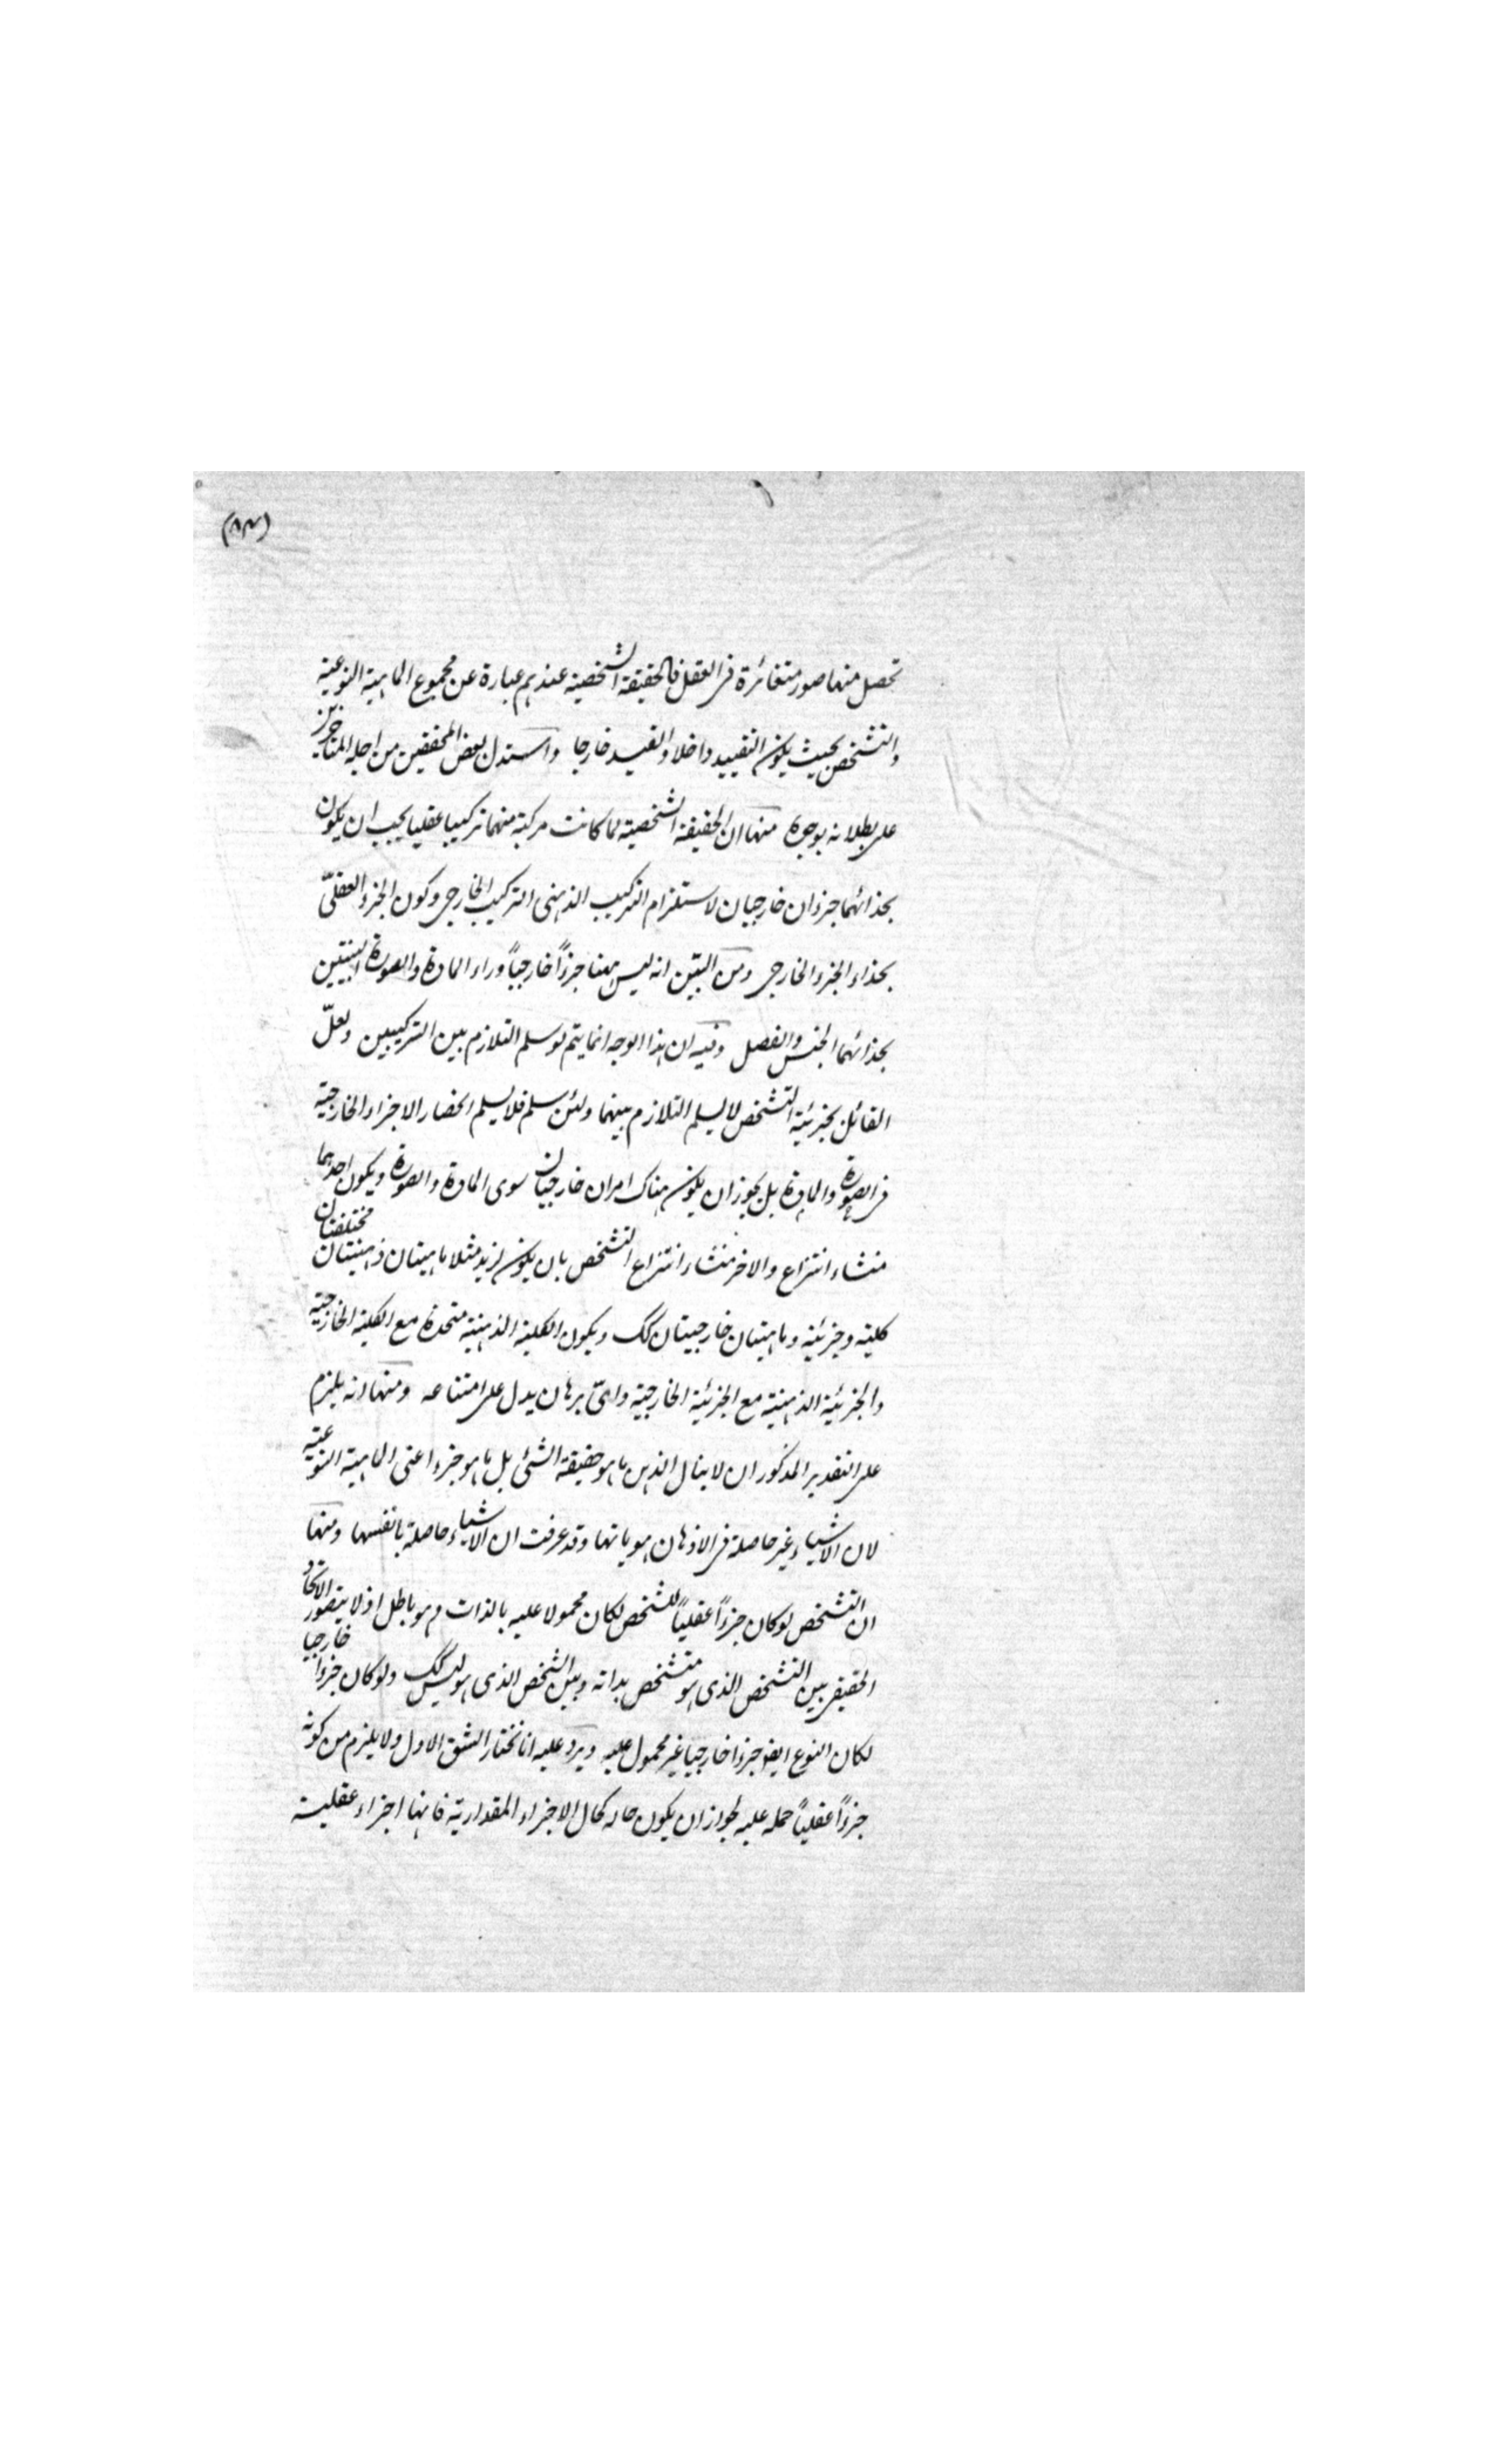 (٨٢)
تحصل منها صور متغائرة فى العقل فالحقيقة الشخصية عندهم عبارة عن مجموع الماهية النوعية
والتشخص بحيث يكون التقييد داخلا والقيد خارجا واستدل بعض المحققين من اجلة المتاخرين
على بطلانه بوجوه منها ان الحقيقة الشخصية لما كانت مركبة منهما تركيبا عقليا يجب ان يكون
بحذائهما جزءان خارجيان لاستلزام التركيب الذهنى التركيب الخارجى وكون الجزء العقلىّ
بحذاء الجزء الخارجى ومن البيّن انه ليس ههنا جزءاً خارجياً وراء المادة والصورة التيتين
بحذائهما الجنس والفصل وفيه ان هذا الوجه انما يتم لو سلم التلازم بين التركيبين ولعلّ
القائل بجزئية التشخص لا يسلم التلازم بينهما ولئن سلم فلا يسلم انحصار الاجزاء الخارجية
فى الصورة والمادة بل يجوز ان يكون هناك امران خارجيان سوى المادة والصورة ويكون احدهما
منشاء انتزاع والاخر منشاء انتزاع التشخص بان يكون لزيد مثلا ماهيتان ذهنيتان مختلفتان
كلية وجزئية وماهيتان خارجيتان كك ويكون الكلية الذهنية متحدة مع الكلية الخارجية
والجزئية الذهنية مع الجزئية الخارجية واىّ برهان يدل على امتناعه ومنها انه يلزم
على التقدير المذكور ان لا ينال الذهن ما هو حقيقة الشئ بل ما هو جزء اعنى الماهية النوعية
لان الاشياء غير حاصلة فى الاذهان بهوياتها وقد عرفت ان الاشياء حاصلة بانفسها ومنها
ان التشخص لو كان جزءاً عقلياً للشخص لكان محمولا عليه بالذات وهو باطل اذ لا يتصور الاتحاد
الحقيقى بين التشخص الذى هو متشخص بذاته وبين الشخص الذى هو ليس كك ولو كان جزءا خارجيا
لكان النوع ايضا جزءا خارجيا غير محمول عليه ويرد عليه انا نختار الشق الاول ولا يلزم من كونه
جزءاً عقلياً حمله عليه لجواز ان يكون حاله كحال الاجزاء المقدارية فانها اجزاء عقلية